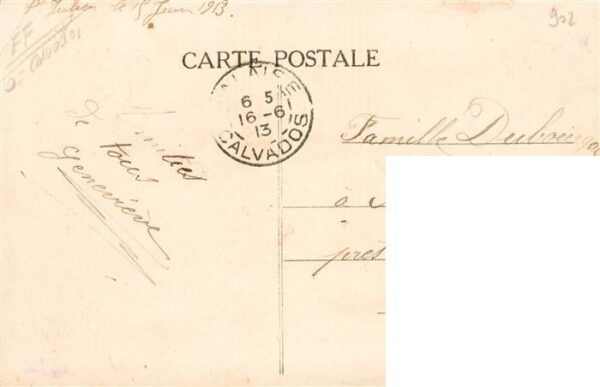 St Julien le 15 Juin 1913.
902
FF
Calvados
CARTE POSTALE
6 5
16 - 6
13
CALVADOS
Amitiés
de tous
Geneviève
Famille
à
près